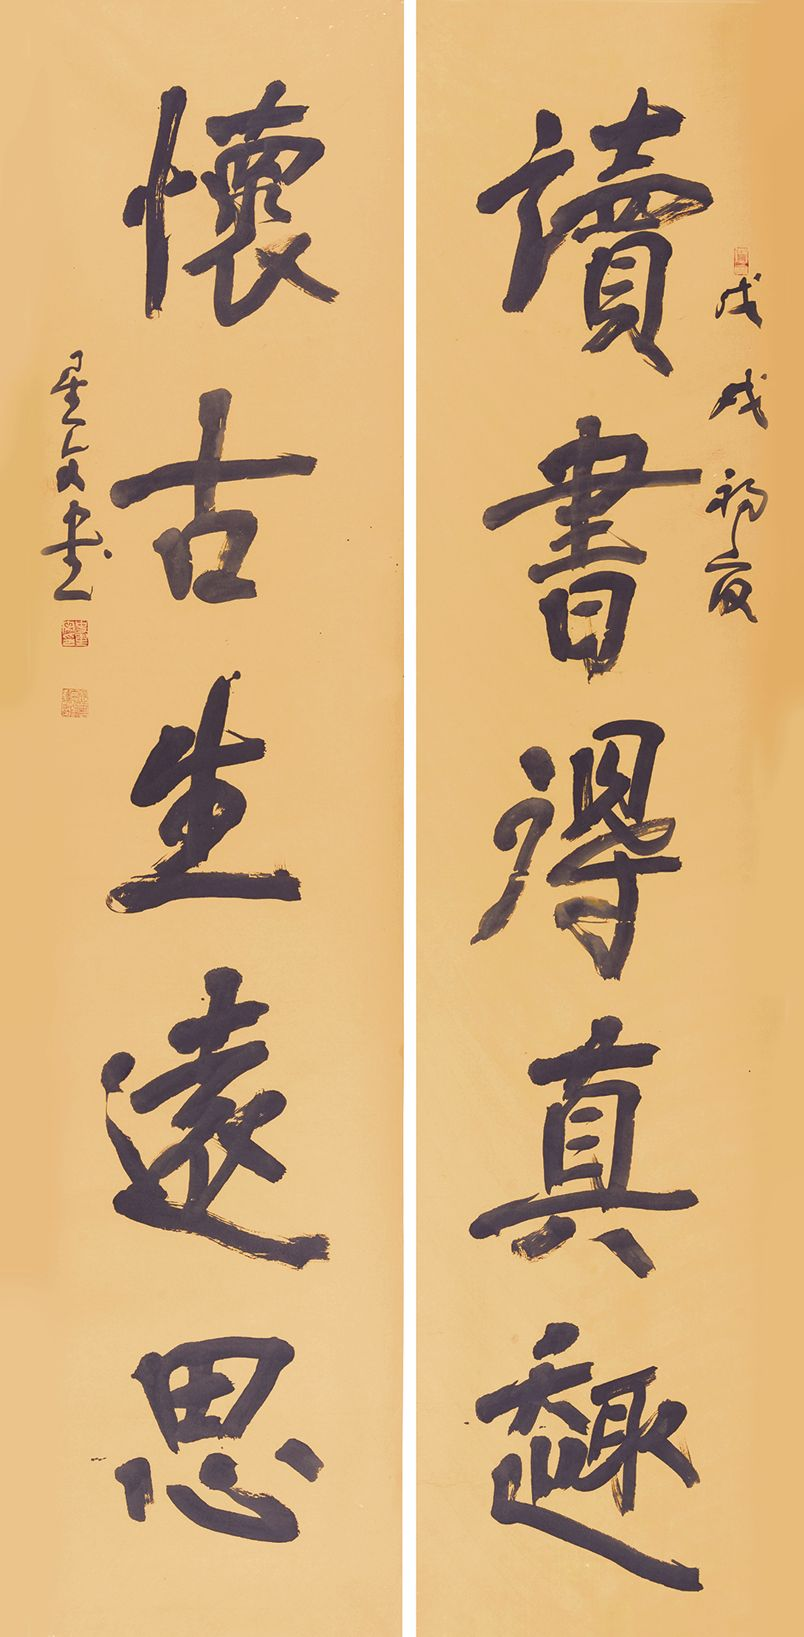 讀書得真趣
戊戌初夏
懷古生遠思
星文書